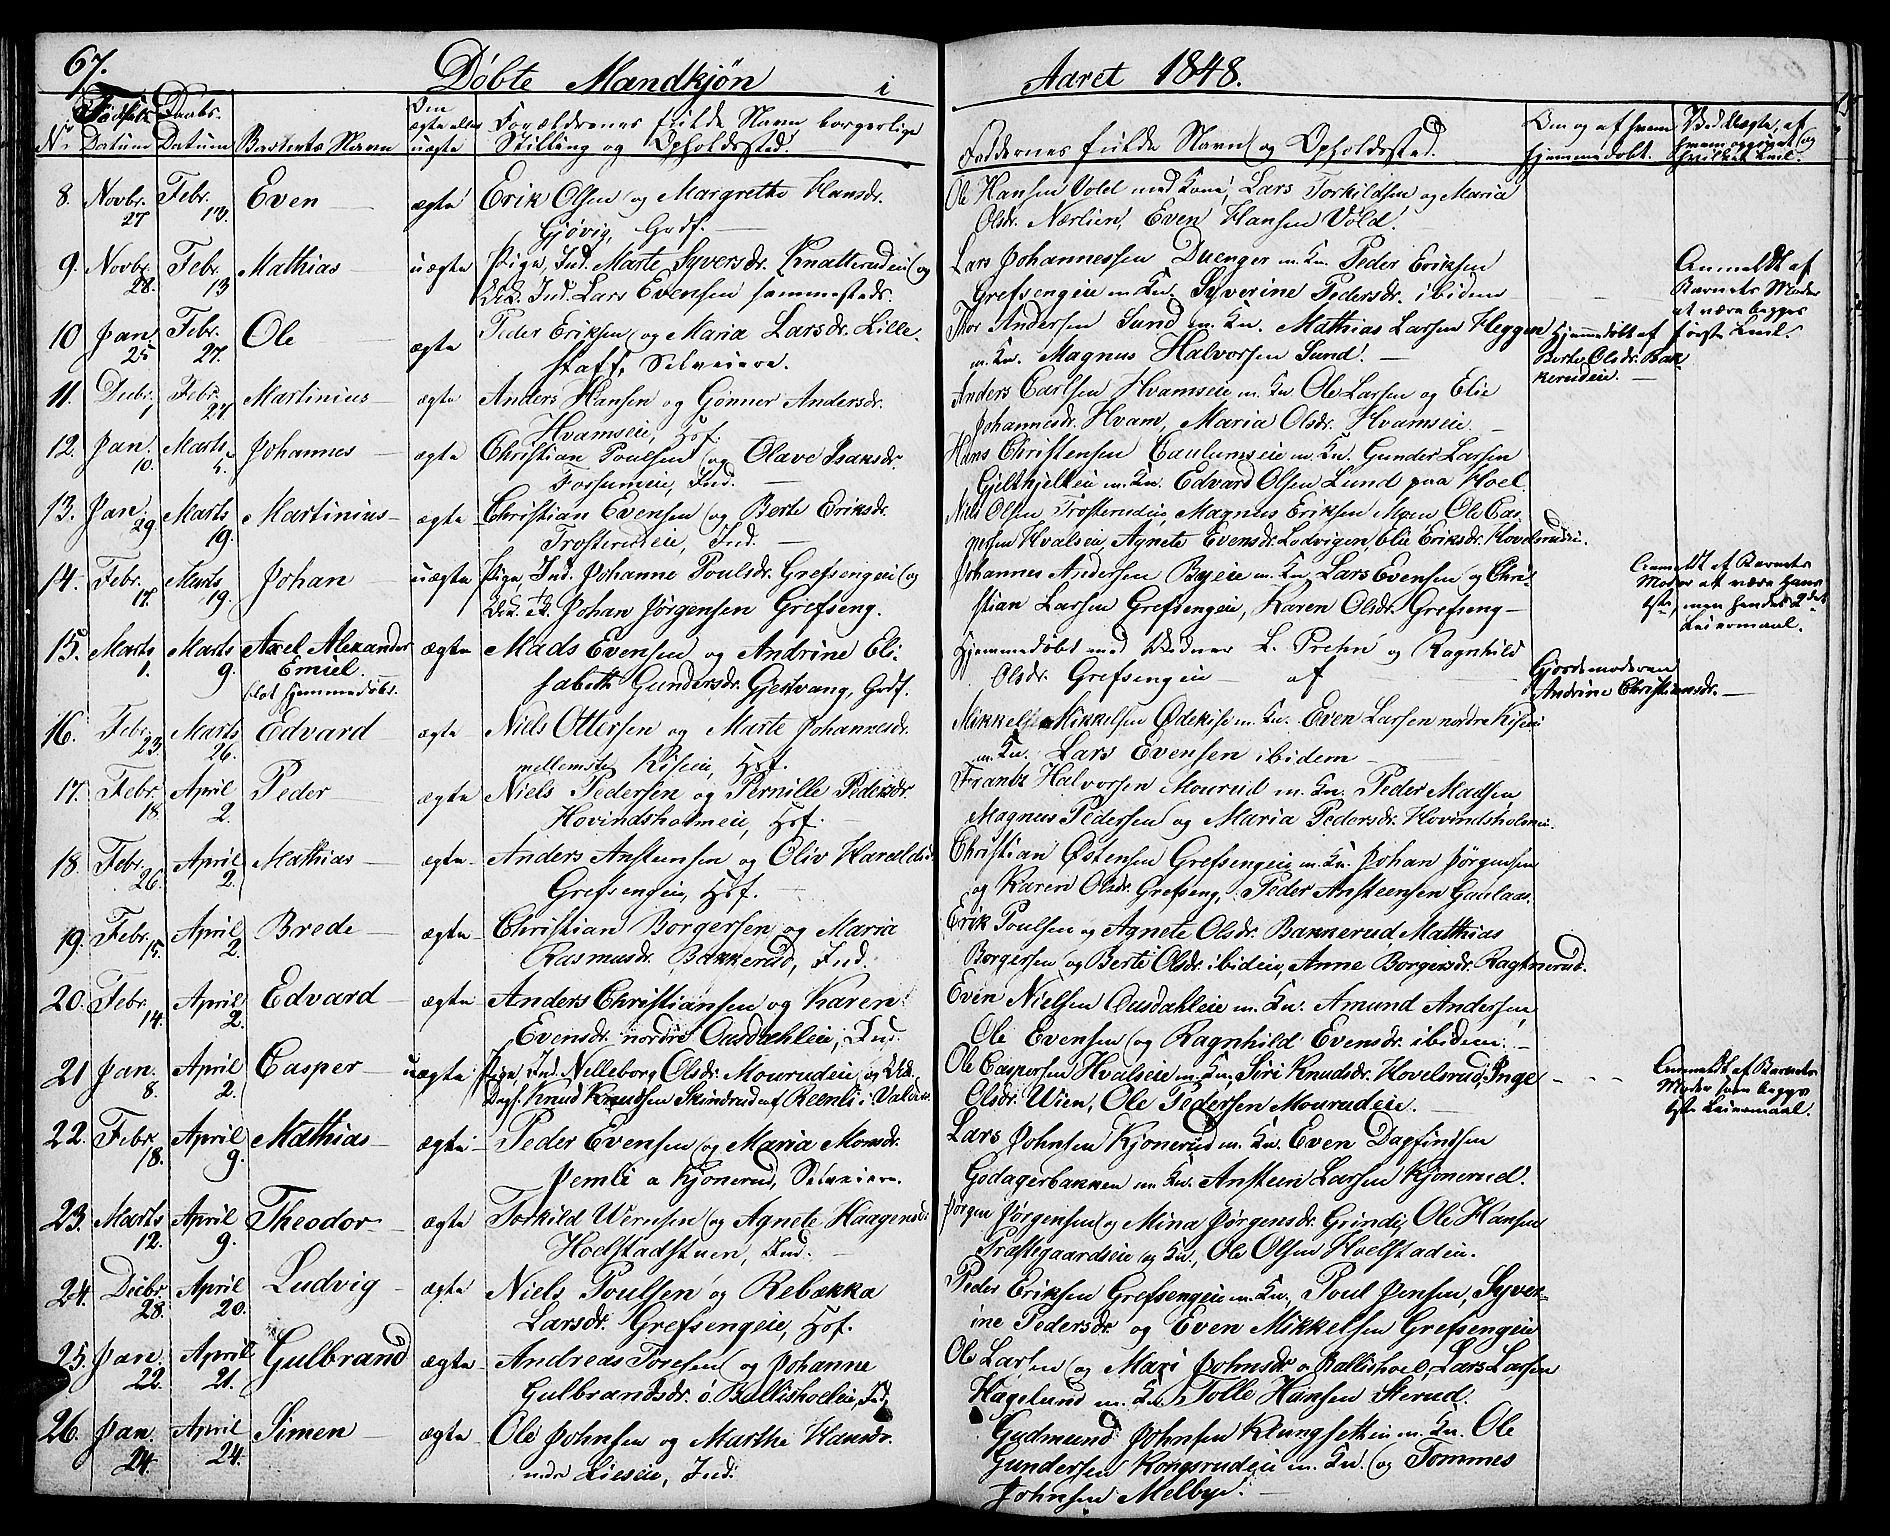 67.
Døbte Mandkjøn i
Aaret 1848.
Fødsels Daabs-
No Datum Datum Barnets Navn
Om ægte eller uægte
Forældrenes fulde Navn borgerlige
Stilling og Opholdssted.
Faddernes fulde Navn og Opholdssted.
Om og af hvem
hjemmedøbt.
Ved Uægte, af
hvem opgivet og
hvilket Leil.
8. Novbr. 27 Febr. 13. Even ægte Erik Olsen og Margrethe Hansdr.
Gjøvig, Grdf.
Ole Hansen Vold med Kone, Lars Torkildsen og Maria
Olsdr. Nærlien, Even Hansen Vold.
9. Novbr. 28. Febr. 13 Mathias uægte Pige, Ind. Marte Syversdr. Knatterudeie og
Ind. Lars Evensen sammesteds.
Lars Johannessen Duenger m. Kn. Peder Eriksen
Grefsengeie m. Kn. Syverine Pedersdr. ibidem
Anmeldt af
Barnets Moder
at være begges
første Leil.
10 Jan. 25 Febr. 27. Ole ægte Peder Eriksen og Maria Larsdr. Lille-
staff, Selveiere.
Thor Andersen Sund m. Kn. Mathias Larsen Heggen
m. Kn. Magnus Halvorsen Sund.
Hjemmedøbt af
Berte Olsdr. Bak-
kerudeie.
11. Decbr. 1 Febr. 27 Martinius ægte Anders Hansen og Gønner Andersdr.
Hvamseie, Hsf.
Anders Carlsen Hvamseie m. Kn. Ole Larsen og Elie
Johannesdr. Hvam, Maria Olsdr. Hvamseie.
12. Jan. 10. Marts 5. Johannes ægte Christian Poulsen og Olave Isaksdr.
Fossumeie, Ind.
Hans Christensen Caulumseie m. Kn. Gunder Larsen
m. Kn. Edvard Olsen Lund paa Hoel
13. Jan. 29 Marts 19. Martinius ægte Christian Evensen og Berte Eriksdr.
Trosterudeie, Ind.
Niels Olsen Trosterudeie, Magnus Eriksen Ole Cas-
persen Hvalseie Agnete Evensdr. Lodvigen, Elie Eriksdr. Hovelsrudeie.
14. Febr. 17. Marts 19. Johan uægte Pige, Ind. Johanne Poulsdr. Grefsengeie og
Johan Jørgensen Grefseng.
Johannes Andersen Byeie m. Kn. Lars Evensen og Chri-
stian Larsen Grefsengeie, Karen Olsdr. Grefseng
Anmeldt af Barnets
Moder at være Hans
1ste, men hendes 2det
Leiermaal.
15. Marts 1. Marts 9. Axel Alexander
Emiel.
blot hjemmedøbt.
ægte Mads Evensen og Andrine Eli-
sabeth Gundersdr. Gjestvang, Grdf.
Hjemmedøbt med Vidner L. Prehn og Ragnhild
Olsdr. Grefsengeie af
Gjordemoderen
Andrine Christiansdr.
16. Febr. 23. Marts 26. Edvard ægte Niels Ottersen og Marte Johannesdr.
mellemste Kiseeie, Hsf.
Mikkel Mikkelsen Ødekise m. Kn. Even Larsen nordre Kiseeie
m. Kn. Lars Evensen ibidem
17. Febr. 18 April 2. Peder ægte Niels Pedersen og Pernille Pedersdr.
Hovindsholmeie, Hsf.
Frantz Halvorsen Mourud m. Kn. Peder Madsen
Magnus Pedersen og Maria Pedersdr. Hovindsholmeie.
18. Febr. 26. April 2. Mathias ægte Anders Anstensen og Oliv Haraldsdr.
Grefsengeie, Hsf.
Christian Østensen Grefsengeie m. Kn. Johan Jørgensen
og Karen Olsdr. Grefseng, Peder Ansteensen Gaalaas.
19. Febr. 15. April 2. Brede ægte Christian Borgersen og Maria
Rasmusdr. Bakkerud, Ind.
Erik Poulsen og Agnete Olsdr. Bakkerud Mathias
Borgersen og Berte Olsdr. ibidem, Anne Borgersdr. Ragknerud.
20. Febr. 14. April 2. Edvard ægte Anders Christiansen og Karen
Evensdr. nordre Aasdahleie, Ind.
Even Nielsen Aasdahleie m. Kn. Amund Andersen,
Ole Evensen og Ragnhild Evensdr. ibidem.
21 Jan. 8. April 2. Casper uægte Pige, Ind. Nelleborg Olsdr. Mourudeie og
Knud Knudsen Skindrud af Reenli i Valdres
Ole Caspersen Hvalseie m. Kn. Siri Knudsdr. Hovelsrud, Inge
Olsdr. Wien, Ole Pedersen Mourudeie.
Anmeldt af Barnets
Moder som begges
1ste Leiermaal.
22. Febr. 18. April 9. Mathias ægte Peder Evensen og Maria Monsdr.
Jemli a Kjonerud, Selveiere.
Lars Johnsen Kjonerud m. Kn. Even Dagfindsen
Godagerbakken m. Kn. Anstein Larsen Kjonerud.
23. Marts 12. April 9. Theodor ægte Torkild Wernsen og Agnete Haagensdr.
Hoelstadstuen, Ind.
Jørgen Jørgensen og Mina Jørgensdr. Grindi, Ole Hansen
Præstegaardseie og Kn., Ole Olsen Hoelstadeie.
24. Decbr. 28. April 20. Ludvig ægte Niels Poulsen og Rebækka
Larsdr. Grefsengeie, Hsf.
Peder Eriksen Grefsengeie m. Kn., Poul Jensen, Syver-
ine Pedersdr. og Even Mikkelsen Grefsengeie
25. Jan. 22. April 21. Gulbrand ægte Andreas Toresen og Johanne
Gulbrandsdr. o Ballishoeleie, Ind.
Ole Larsen og Mari Johnsdr. o Ballishoel, Lars Larsen
Hagelund m. Kn. Tolle Hansen Sterud.
26. Jan. 24. April 24. Simen ægte Ole Johnsen og Marthe Hansdr.
Lieseie, Ind.
Gudmund Johnsen Klungsetteie m. Kn. Ole
Gundersen Kongsrudeie m. Kn. og Tommes
Johnsen Melbye.